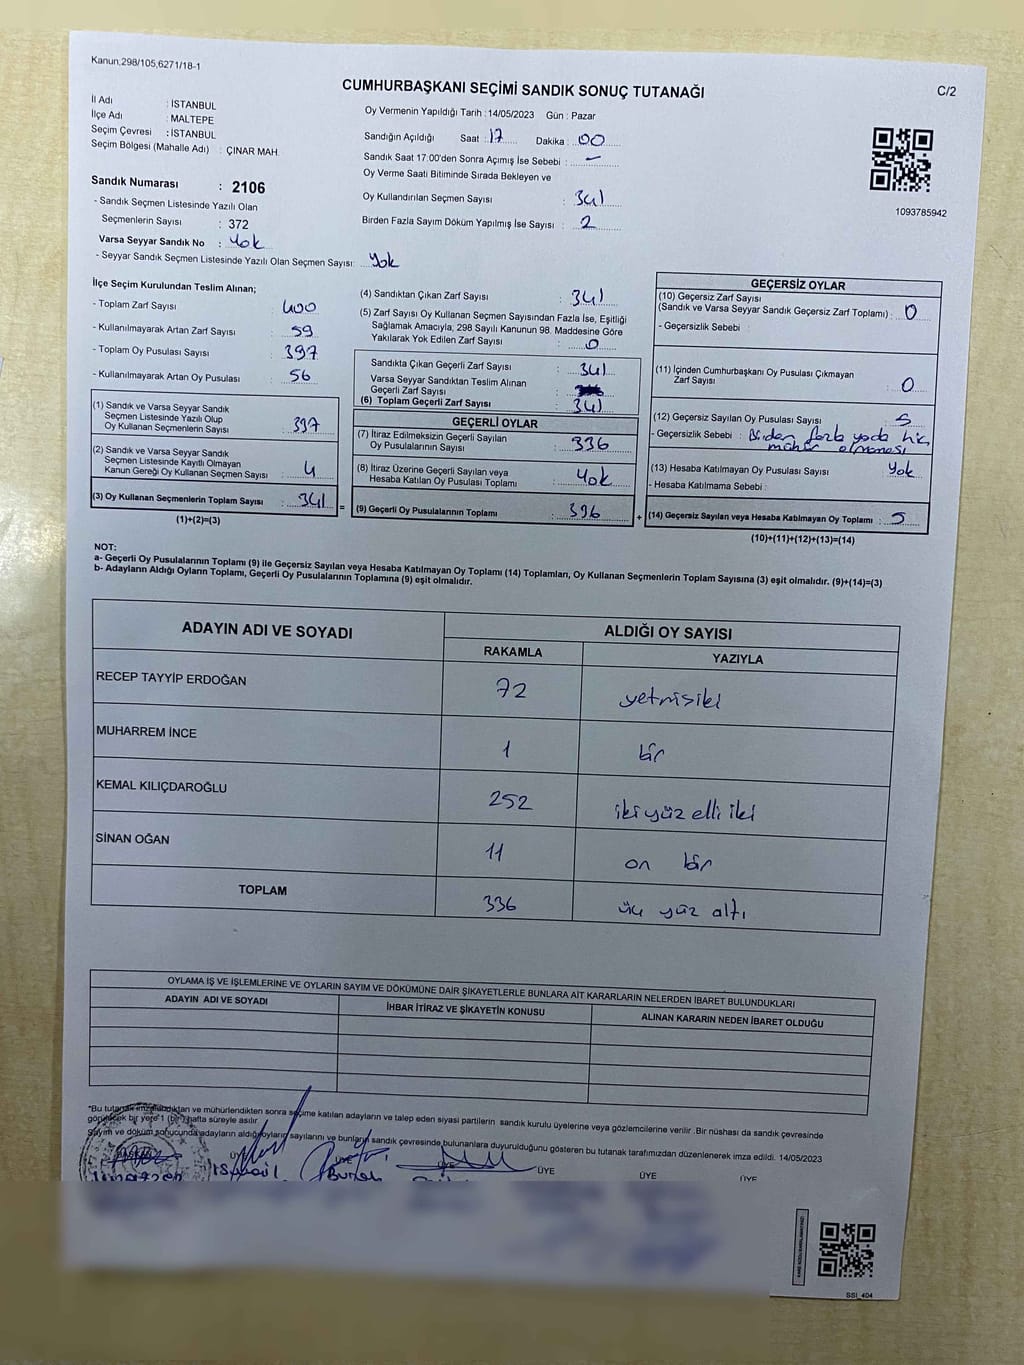 Kanun,298/105,6271/18-1
CUMHURBAŞKANI SEÇİMİ SANDIK SONUÇ TUTANAĞI
C/2
İl Adı : İSTANBUL
İlçe Adı : MALTEPE
Seçim Çevresi : İSTANBUL
Seçim Bölgesi (Mahalle Adı) : ÇINAR MAH.
Sandık Numarası : 2106
- Sandık Seçmen Listesinde Yazılı Olan
Seçmenlerin Sayısı : 372
Varsa Seyyar Sandık No : Yok
- Seyyar Sandık Seçmen Listesinde Yazılı Olan Seçmen Sayısı: Yok
Oy Vermenin Yapıldığı Tarih :14/05/2023 Gün : Pazar
Sandığın Açıldığı Saat : 17 Dakika : 00
Sandık Saat 17:00'den Sonra Açımış İse Sebebi : -
Oy Verme Saati Bitiminde Sırada Bekleyen ve
Oy Kullandırılan Seçmen Sayısı : 341
Birden Fazla Sayım Döküm Yapılmış İse Sayısı : 2
1093785942
İlçe Seçim Kurulundan Teslim Alınan;
- Toplam Zarf Sayısı 400
- Kullanılmayarak Artan Zarf Sayısı : 59
- Toplam Oy Pusulası Sayısı : 397
- Kullanılmayarak Artan Oy Pusulası : 56
(1) Sandık ve Varsa Seyyar Sandık
Seçmen Listesinde Yazılı Olup
Oy Kullanan Seçmenlerin Sayısı : 337
(2) Sandık ve Varsa Seyyar Sandık
Seçmen Listesinde Kayıtlı Olmayan
Kanun Gereği Oy Kullanan Seçmen Sayısı : 4
(3) Oy Kullanan Seçmenlerin Toplam Sayısı : 341
(1)+(2)=(3)
(4) Sandıktan Çıkan Zarf Sayısı : 341
(5) Zarf Sayısı Oy Kullanan Seçmen Sayısından Fazla İse, Eşitliği
Sağlamak Amacıyla; 298 Sayılı Kanunun 98. Maddesine Göre
Yakılarak Yok Edilen Zarf Sayısı : 0
Sandıkta Çıkan Geçerli Zarf Sayısı : 341
Varsa Seyyar Sandıktan Teslim Alınan
Geçerli Zarf Sayısı :
(6) Toplam Geçerli Zarf Sayısı : 341
GEÇERLİ OYLAR
(7) İtiraz Edilmeksizin Geçerli Sayılan
Oy Pusulasının Sayısı : 336
(8) İtiraz Üzerine Geçerli Sayılan veya
Hesaba Katılan Oy Pusulası Toplamı : Yok
(9) Geçerli Oy Pusulalarının Toplamı : 336
GEÇERSİZ OYLAR
(10) Geçersiz Zarf Sayısı
(Sandık ve Varsa Seyyar Sandık Geçersiz Zarf Toplamı) : 0
- Geçersizlik Sebebi :
(11) İçinden Cumhurbaşkanı Oy Pusulası Çıkmayan
Zarf Sayısı : 0
(12) Geçersiz Sayılan Oy Pusulası Sayısı : 5
- Geçersizlik Sebebi : Birden fazla yada hiç
mühür olmaması
(13) Hesaba Katılmayan Oy Pusulası Sayısı : Yok
- Hesaba Katılmama Sebebi :
(14) Geçersiz Sayılan veya Hesaba Katılmayan Oy Toplamı : 5
(10)+(11)+(12)+(13)=(14)
NOT:
a- Geçerli Oy Pusulalarının Toplamı (9) ile Geçersiz Sayılan veya Hesaba Katılmayan Oy Toplamı (14) Toplamları, Oy Kullanan Seçmenlerin Toplam Sayısına (3) eşit olmalıdır. (9)+(14)=(3)
b- Adayların Aldığı Oyların Toplamı, Geçerli Oy Pusulalarının Toplamına (9) eşit olmalıdır.
ADAYIN ADI VE SOYADI
ALDIĞI OY SAYISI
RAKAMLA YAZIYLA
RECEP TAYYİP ERDOĞAN 72 yetmişiki
MUHARREM İNCE 1 bir
KEMAL KILIÇDAROĞLU 252 iki yüz elli iki
SİNAN OĞAN 11 on bir
TOPLAM 336 üç yüz altı
OYLAMA İŞ VE İŞLEMLERİNE VE OYLARIN SAYIM VE DÖKÜMÜNE DAİR ŞİKAYETLERLE BUNLARA AİT KARARLARIN NELERDEN İBARET BULUNDUKLARI
ADAYIN ADI VE SOYADI İHBAR İTİRAZ VE ŞİKAYETİN KONUSU ALINAN KARARIN NEDEN İBARET OLDUĞU
*Bu tutanak imzalandıktan ve mühürlendikten sonra seçime katılan adayların ve talep eden siyasi partilerin sandık kurulu üyelerine veya gözlemcilerine verilir .Bir nüshası da sandık çevresinde
görülecek bir yere 1 (bir) hafta süreyle asılır.
Sayım ve döküm sonucunda adayların aldığı oyların sayılarını ve bunların sandık çevresinde bulunanlara duyurulduğunu gösteren bu tutanak tarafımızdan düzenlenerek imza edildi. 14/05/2023
BAŞKAN ÜYE ÜYE ÜYE ÜYE ÜYE ÜYE
İsmail Burak
SSI_404